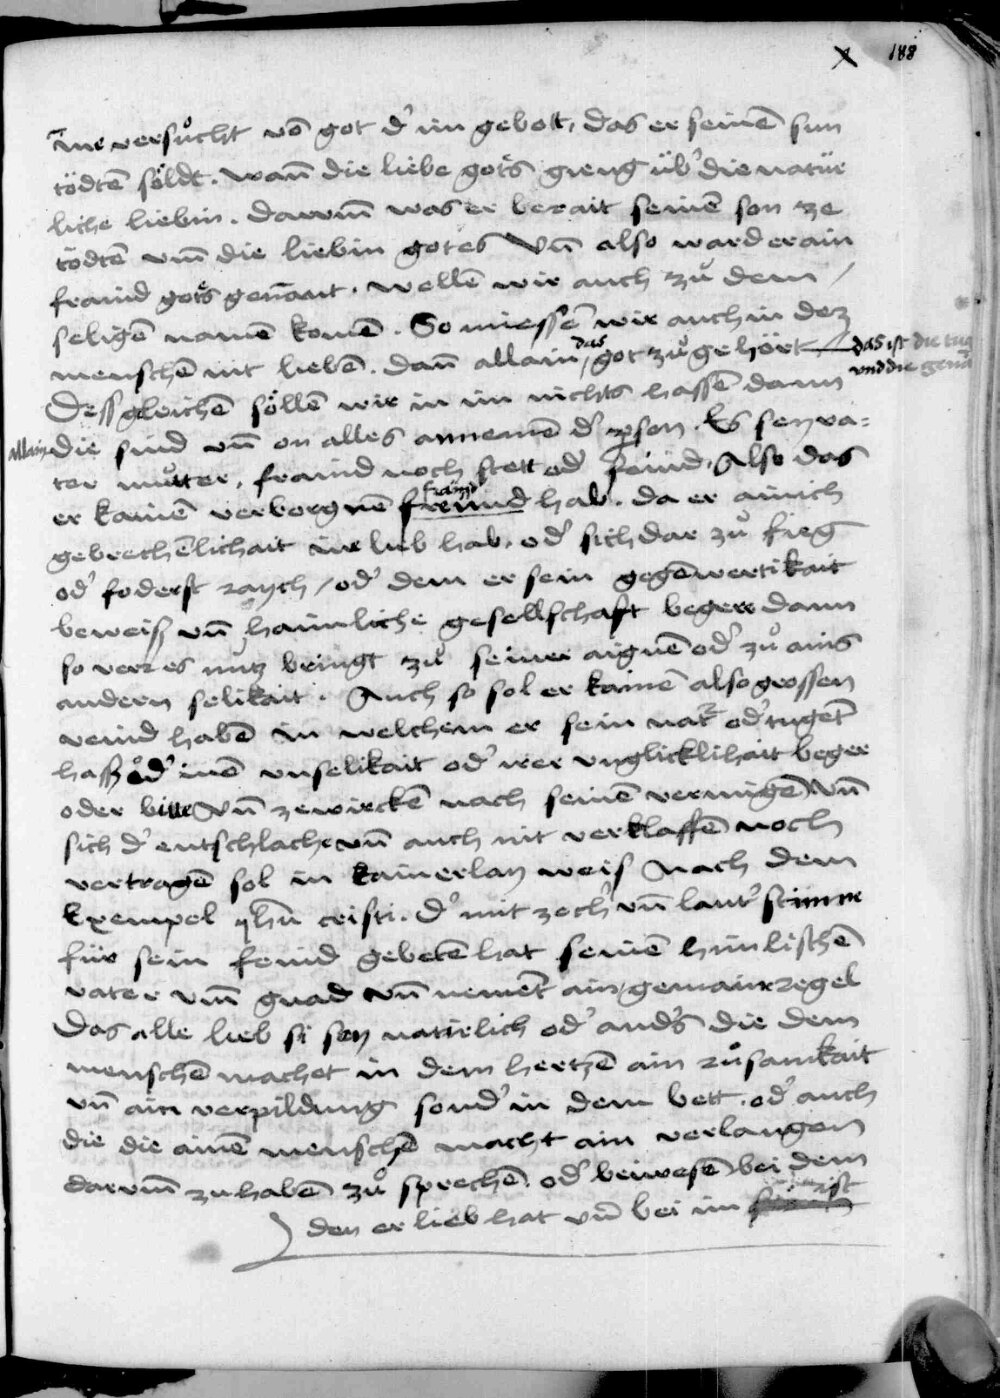 188
Inr versuͦcht võ got d' im gebott, das er seinē sun
tödtē söldt. wañ die liebe gots gieng üb' die natür
liche liebin. darum̄ was er berait seinē son ze
tödtē vm̄ die liebin gotes Vñ also ward er ain
fraind gots genāt. wellē wir auch zuͦ dem
seligē namē komē. So miessē wir auch in dez
menschē nit liebē. dañ allain das got zuͦ gehört das ist die tug
vnd die genā
Dessgleichē söllē wir in im nichts hassē dann
allain die sind vñ on alles annemē d' pson. Es sey va-
ter muͦtter, fraind noch stett od' feind. Also das
er kainē verborgnē freünd fraind hab. da er ainich
gebrechēlichait inr lieb hab. od' sich dar zuͦ fieg
od' foderst raych / od' dem er sein gegēwertikait
beweiß vñ haimliche gesellschaft beger dann
so verr es nutz bringt zuͦ seiner aignē od' zuͦ ains
andern selikait. Auch so sol er kainē also grossen
veind habē in welchem er sein nat' od' tugēt
hass od' inē vnselikait od' irer vnglicklihait beger
oder bitt Vñ zewirckē nach seinē vermigē Vñ
sich d' entschlache vñ auch nit verklaffē noch
vertragē sol in kainerlay weis Nach dem
Exempel ihū cristi. d' mit zech' vñ laut' stimm
für sein feind gebetē hat seinē himlischē
vater vm̄ gnad vñ nement ain gemaine regel
Das alle lieb si sey natirlich od' and's die dem
menschē machet in dem hertzē ain ruͦsamkait
vñ ain verpildung sond' in dem bett. od' auch
die die ainē menschē macht ain verlangen
darum̄ zu habē zuͦ sprechē od' beiwesē bei dem
den er lieb hat vñ bei im ist